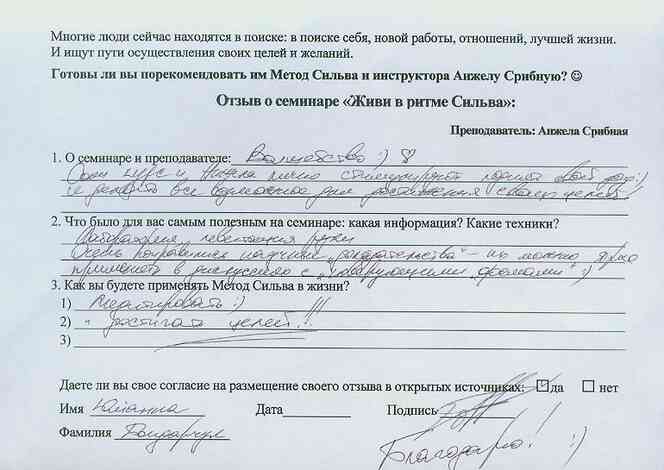 Многие люди сейчас находятся в поиске: в поиске себя, новой работы, отношений, лучшей жизни.
И ищут пути осуществления своих целей и желаний.
Готовы ли вы порекомендовать им Метод Сильва и инструктора Анжелу Срибную? ☺
Отзыв о семинаре «Живи в ритме Сильва»:
Преподаватель: Анжела Срибная
1. О семинаре и преподавателе: Волшебство :) ♡
Анжела лично стимулируют поднят свой :)
и делать все возможное для достижения своих целей!
2. Что было для вас самым полезным на семинаре: какая информация? Какие техники?
левитация руки
Очень понравились научные "доказательства" – их можно
применять в дискуссию с "неверующими фомами" :)
3. Как вы будете применять Метод Сильва в жизни?
1) Медитировать :) !!!
2) достигать целей!!
3)
Даете ли вы свое согласие на размещение своего отзыва в открытых источниках: ☑ да ☐ нет
Имя Юлианна Дата Подпись
Фамилия Бондарчук
Благодарю! :)